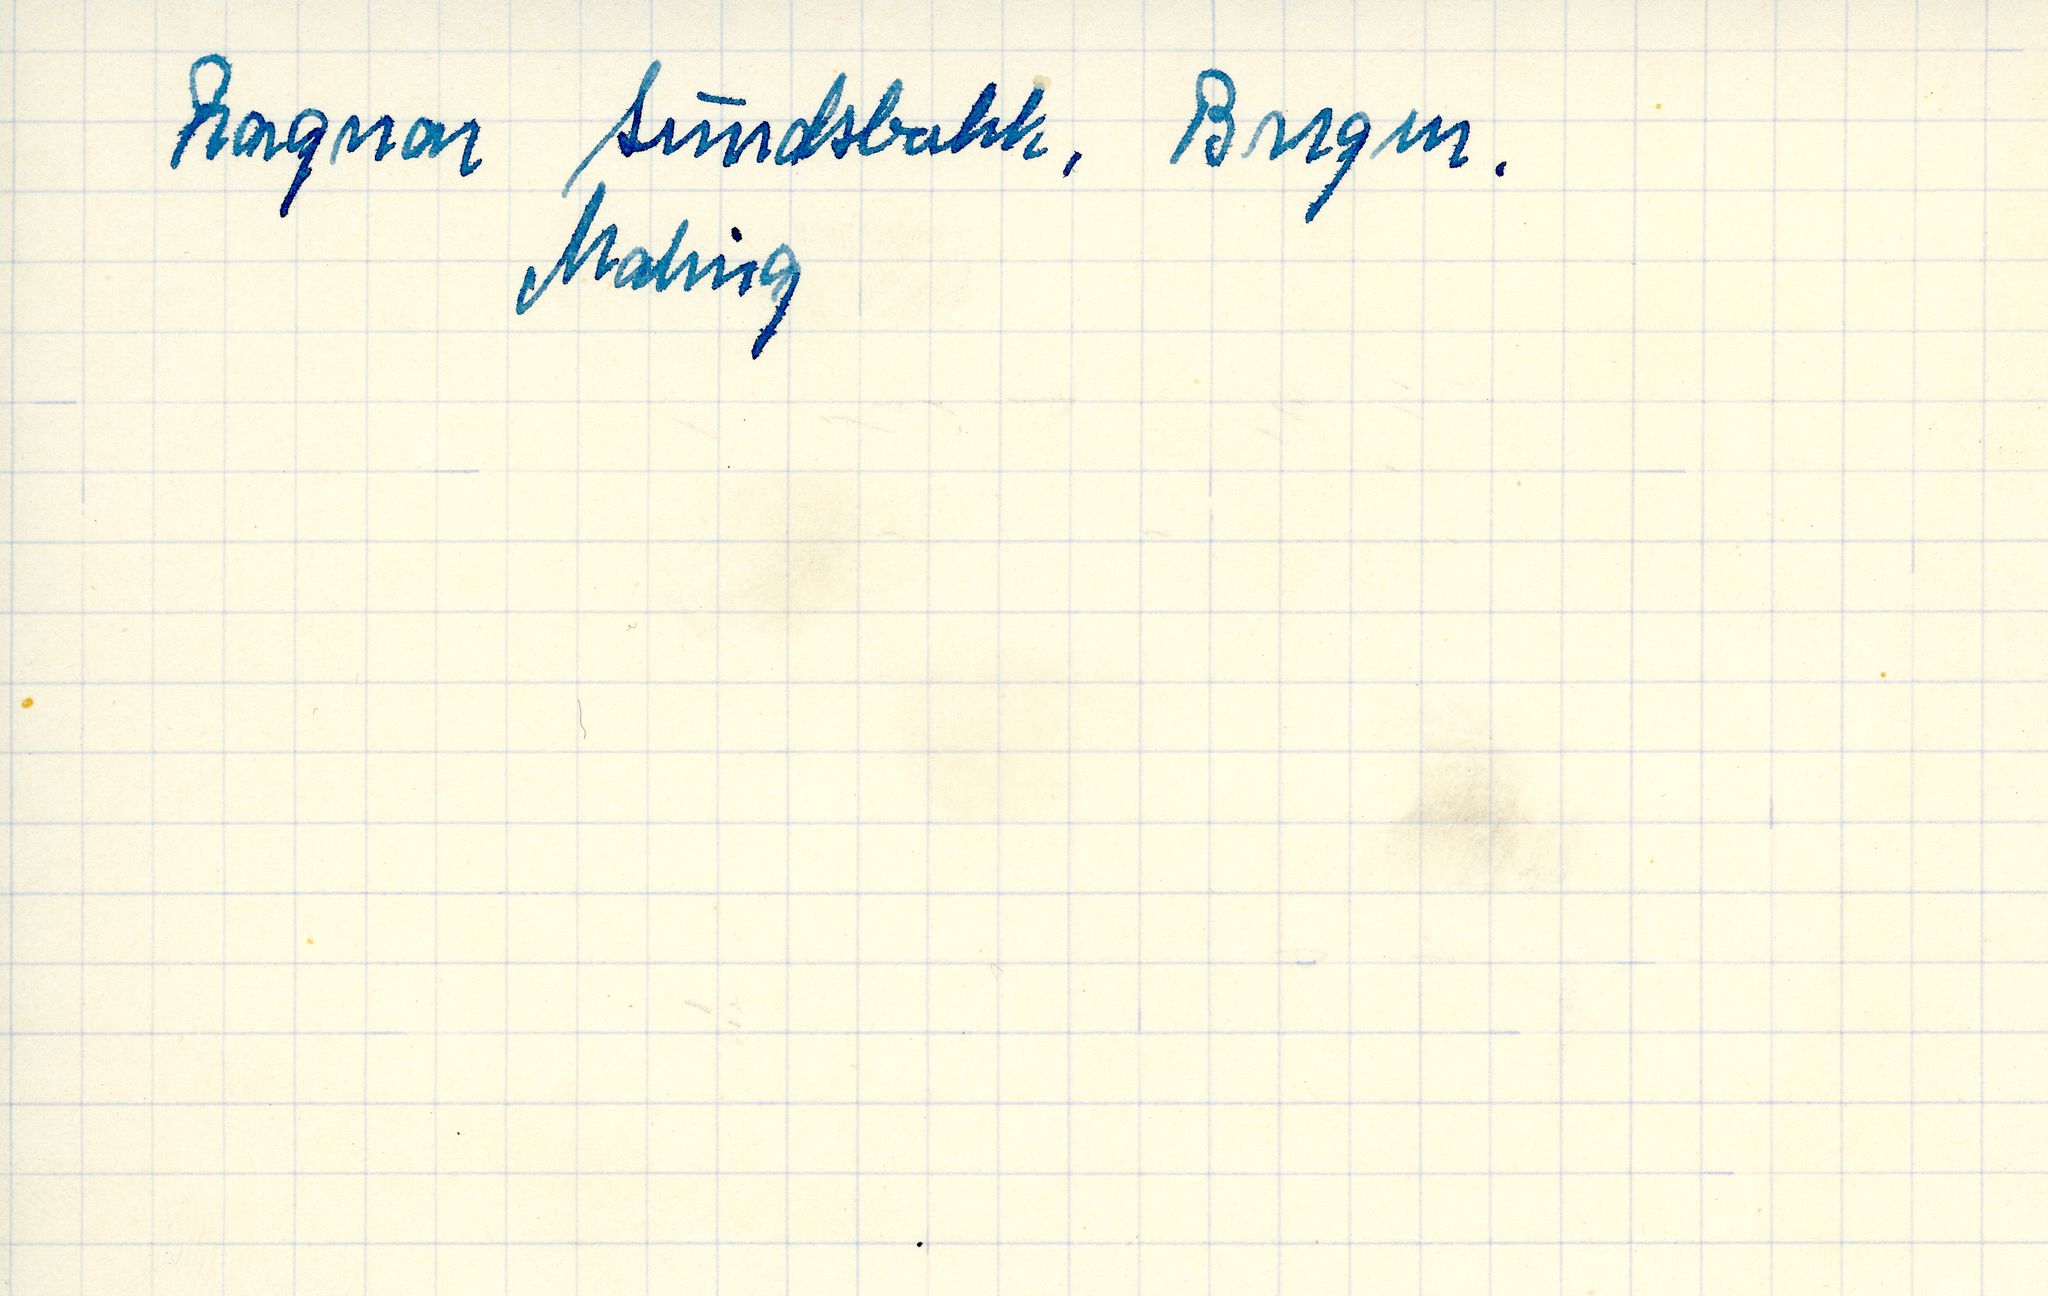 Ragnar Sundsbakk, Bergen.
Maling